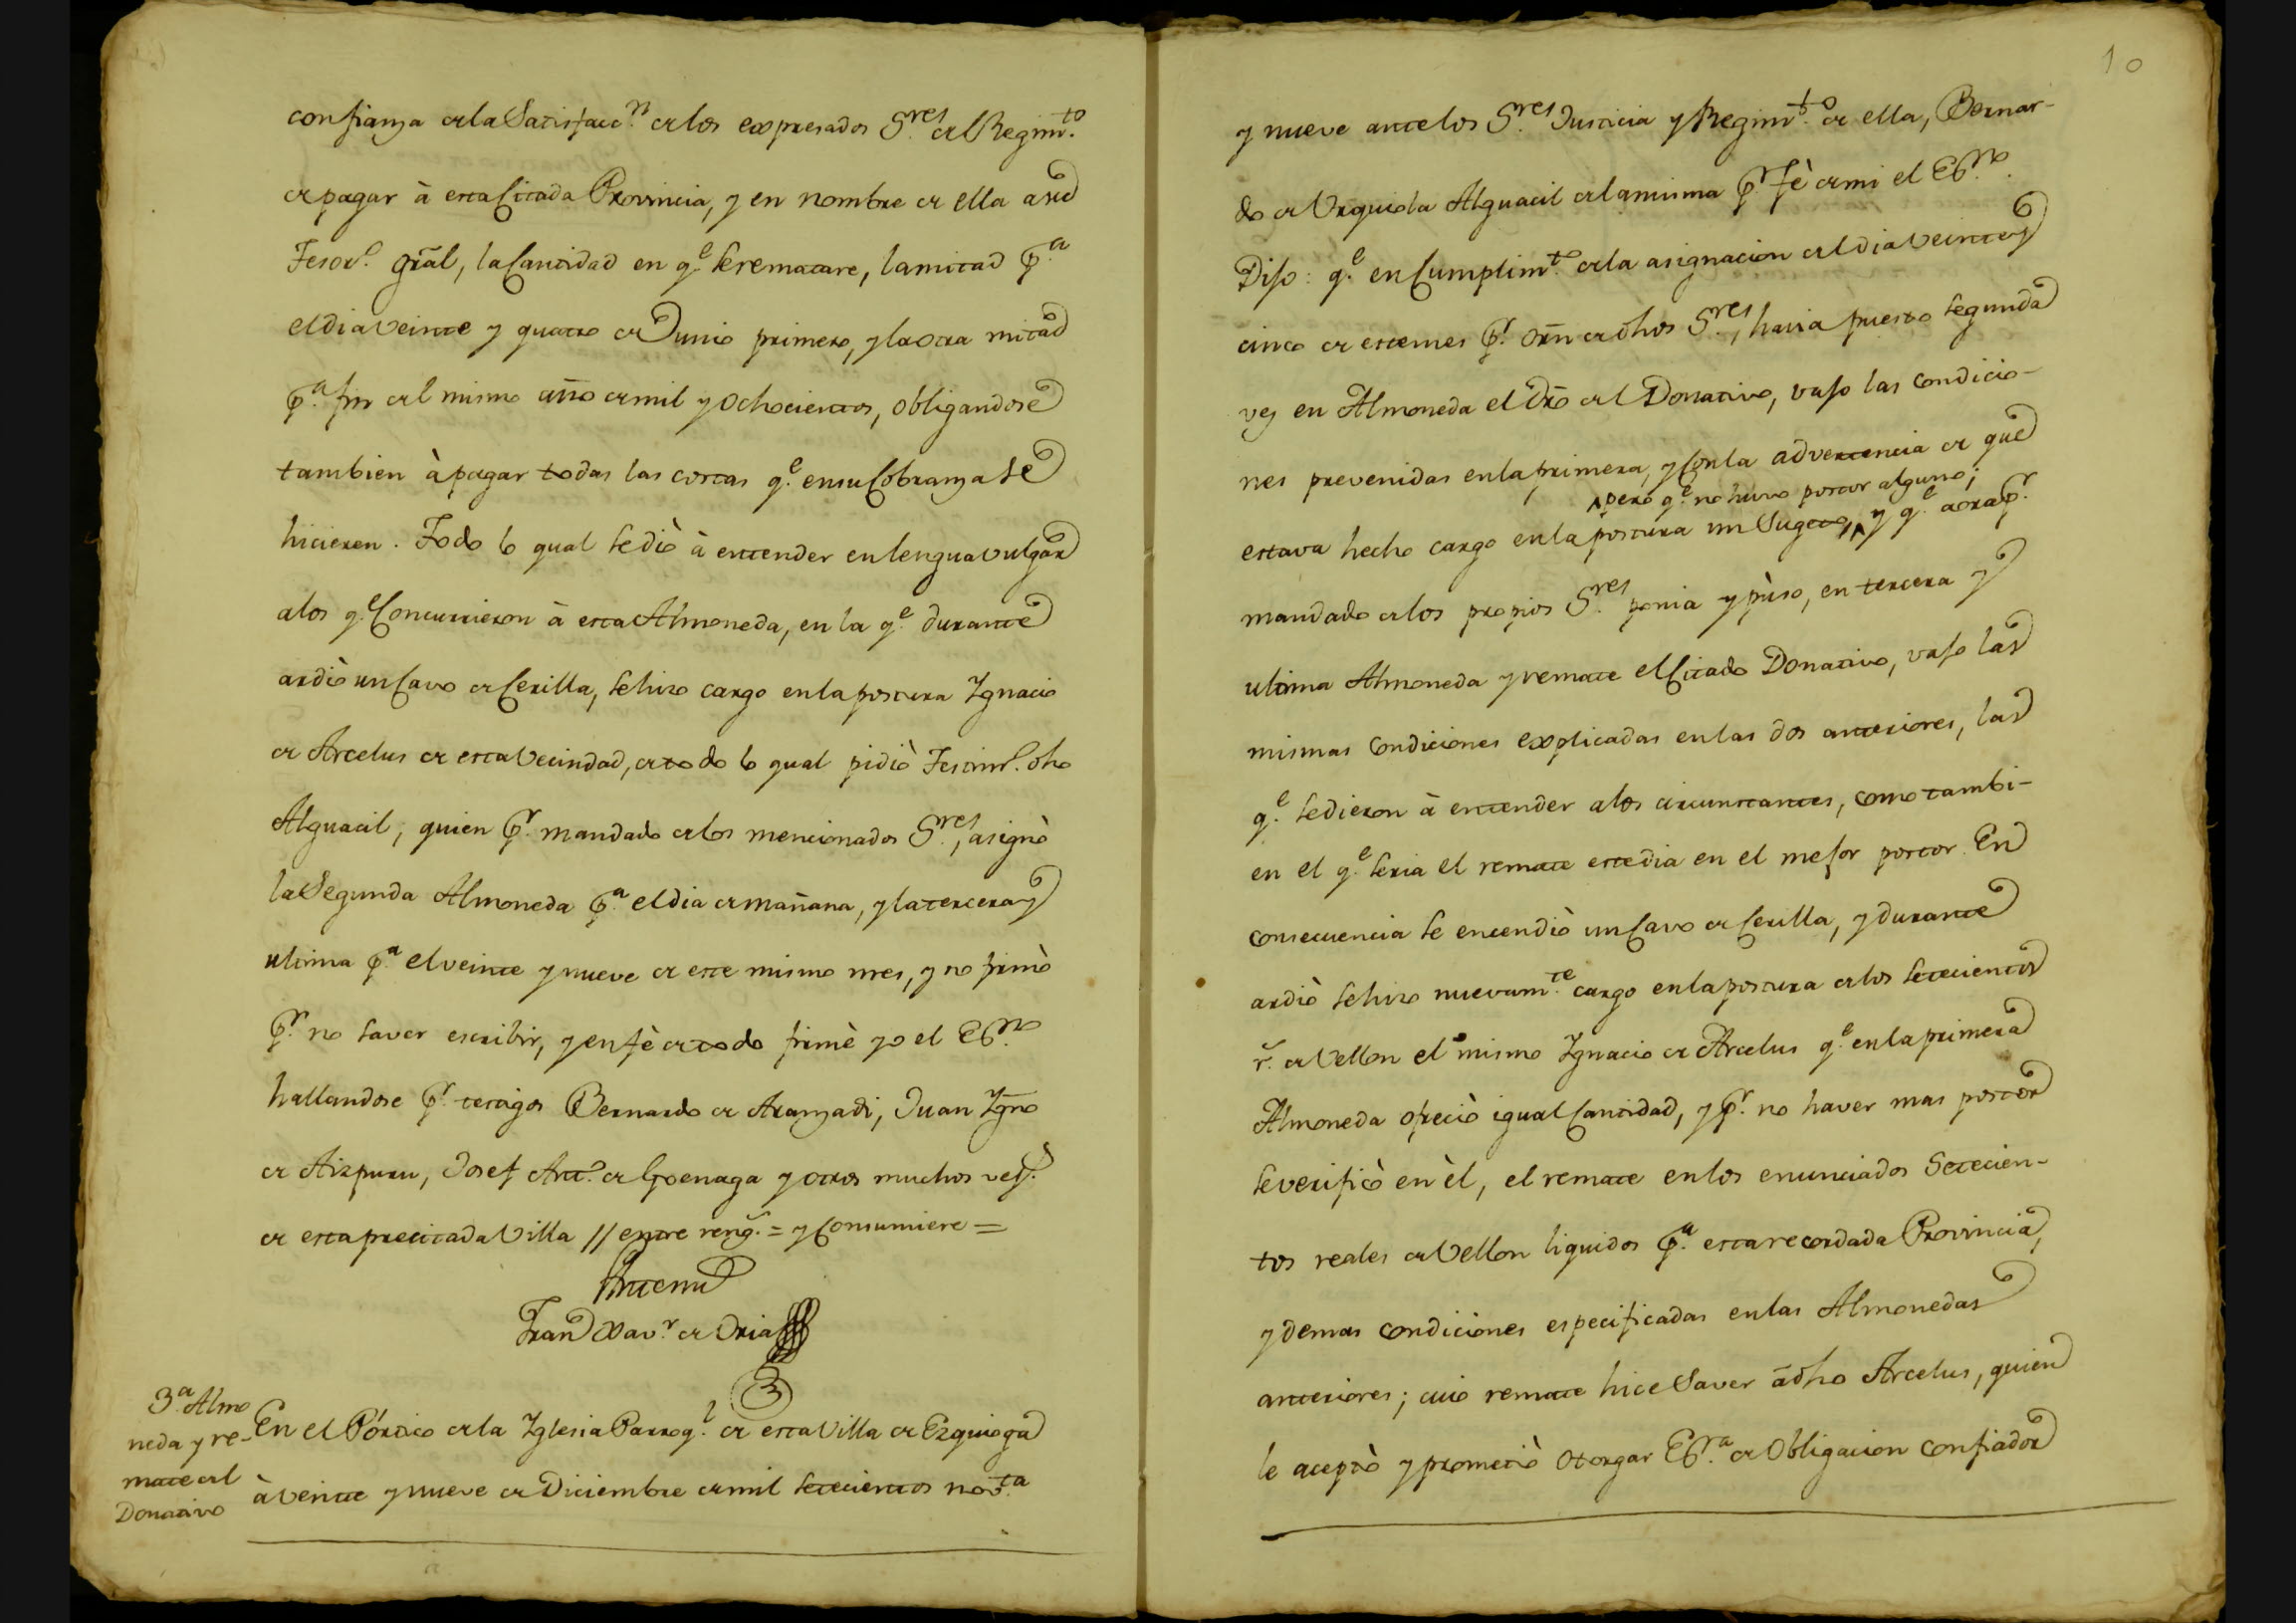 confianza de la Satisfacc.n de los expresados S.res del Regim.to
de pagar à esta Citada Provincia, y en nombre de ella a su
Tesor.o gral, la Cantidad en q.e se rematare, la mitad p.a
el dia veinte y quatro de Junio primero, y la otra mitad
p.a fin del mismo año de mil y ochocientos, obligandose
tambien à pagar todas las costas q.e en su Cobranza se
hicieren. Todo lo qual se diò à entender en lengua vulgar
a los q.e Concurrieron à esta Almoneda, en la q.e durante
ardiò un Cavo de Cerilla, se hizo cargo en la postura Ygnacio
de Arcelus de esta Vecindad, de todo lo qual pidiò Testim.o dho
Alguacil, quien p.r mandado de los mencionados S.res, asignò
la Segunda Almoneda p.a el dia de mañana, y la tercera y
ultima p.a el veinte y nueve de este mismo mes, y no firmò
p.r no saver escribir, y en fè de todo firmè yo el Es.no
hallandose p.r testigos Bernardo de Aramzadi, Juan Ygno
de Aizpuru, Josef Ant.o de Goenaga y otros muchos vez.s
de esta precitada Villa // entre reng.s = y Consumiere =
Antemi
Fran.co Xav.r de Oria
3.a Almo
neda y re-
mate del
Donativo
En el Pórtico de la Yglesia Parroq.l de esta Villa de Ezquioga
à veinte y nueve de Diciembre de mil setecientos nov.ta
10
y nueve ante los S.res Justicia y Regim.to de ella, Bernar-
do de Urquiola Alguacil de la misma p.r fè de mi el Es.no
Dijo: q.e en Cumplim.to de la asignacion del dia veinte y
cinco de este mes p.r orñ de dhos S.res, havia puesto segunda
vez en Almoneda el dro del Donativo, vajo las condicio-
nes prevenidas en la primera, y con la advertencia de que
pero q.e no huvo postor alguno;
estava hecho cargo en la postura un Sugeto, y q.e aora p.r
mandado de los propios S.res ponia y pùso, en tercera y
ultima Almoneda y remate el Citado Donativo, vajo las
mismas condiciones explicadas en las dos anteriores, las
q.e se dieron à entender a los circunstantes, como tambi-
en el q.e seria el remate este dia en el mejor postor. En
consecuencia se encendiò un Cavo de Cerilla, y durante
ardiò se hizo nuevam.te cargo en la postura de los setecientos
r.s de Vellon el mismo Ygnacio de Arcelus q.e en la primera
Almoneda ofreciò igual Cantidad, y p.r no haver mas postor
se verificò en èl, el remate en los enunciados Setecien-
tos reales de Vellon liquidos p.a esta recordada Provincia,
y demas condiciones especificadas en las Almonedas
anteriores; cuio remate hice Saver à dho Arcelus, quien
le aceptò y prometiò otorgar Es.ra de Obligacion con fiador